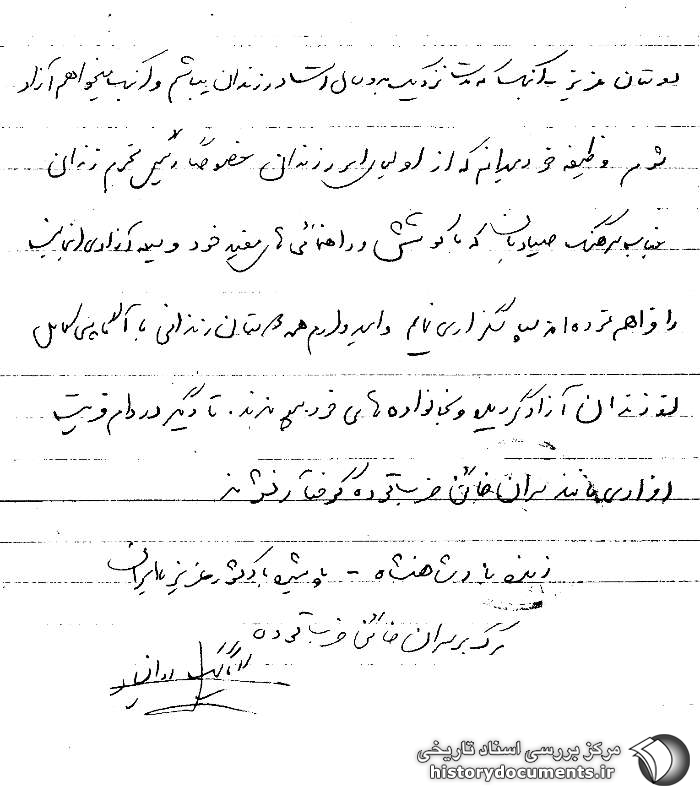 دوستان عزیز بدانید که مدت نزدیک بدو سال است در زندان میباشم و اکنون که میخواهم آزاد
شوم وظیفه خود میدانم که از اولیای امور زندان خصوصاً رئیس محترم زندان
جناب سرهنگ صیادیان که با کوشش و راهنمائی های مفید خود وسیله آزادی اینجانب
را فراهم نموده‌اند سپاسگزاری نمایم و امیدوارم همه دوستان زندانی با آلمانس کامل
از زندان آزاد گردیده و بخانواده های خود بپیوندند. تا دیگر در دام فریب
افرادی مانند سران خائن حزب توده گرفتار نشوند
زنده باد شاهنشاه - پاینده باد کشور عزیز ما ایران
مرگ بر سران خائن حزب توده
مرکز بررسی اسناد تاریخی
historydocuments.ir